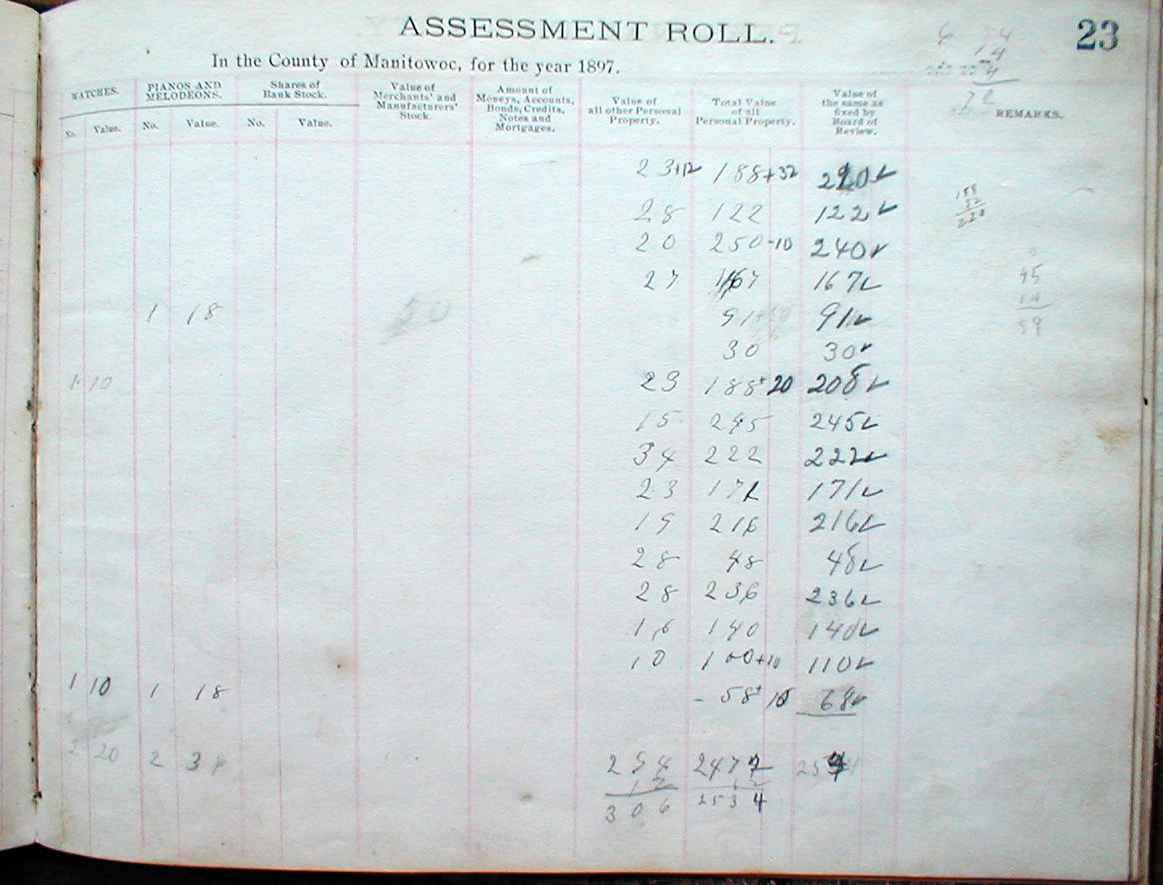 ASSESSMENT ROLL.
23
In the County of Manitowoc, for the year 1897.
WATCHES. PIANOS AND MELODEONS. Shares of Bank Stock. Value of Merchants' and Manufacturers' Stock. Amount of Moneys, Accounts, Bonds, Credits, Notes and Mortgages. Value of all other Personal Property. Total Value of all Personal Property. Value of the same as fixed by Board of Review. REMARKS.
No. Value. No. Value. No. Value.
23+12 188+32
28 122 122
20 250-10 240
27 167 167
1 18 50 91 91
30 30
1 10 23 188+20 208
15 245 245
34 222 222
23 171 171
19 216 216
28 48 48
28 236 236
16 140 140
10 100+10 110
1 10 1 18 58+10 68
2 20 2 36 294 2472
12
306 2534
188
32
220
45
14
59